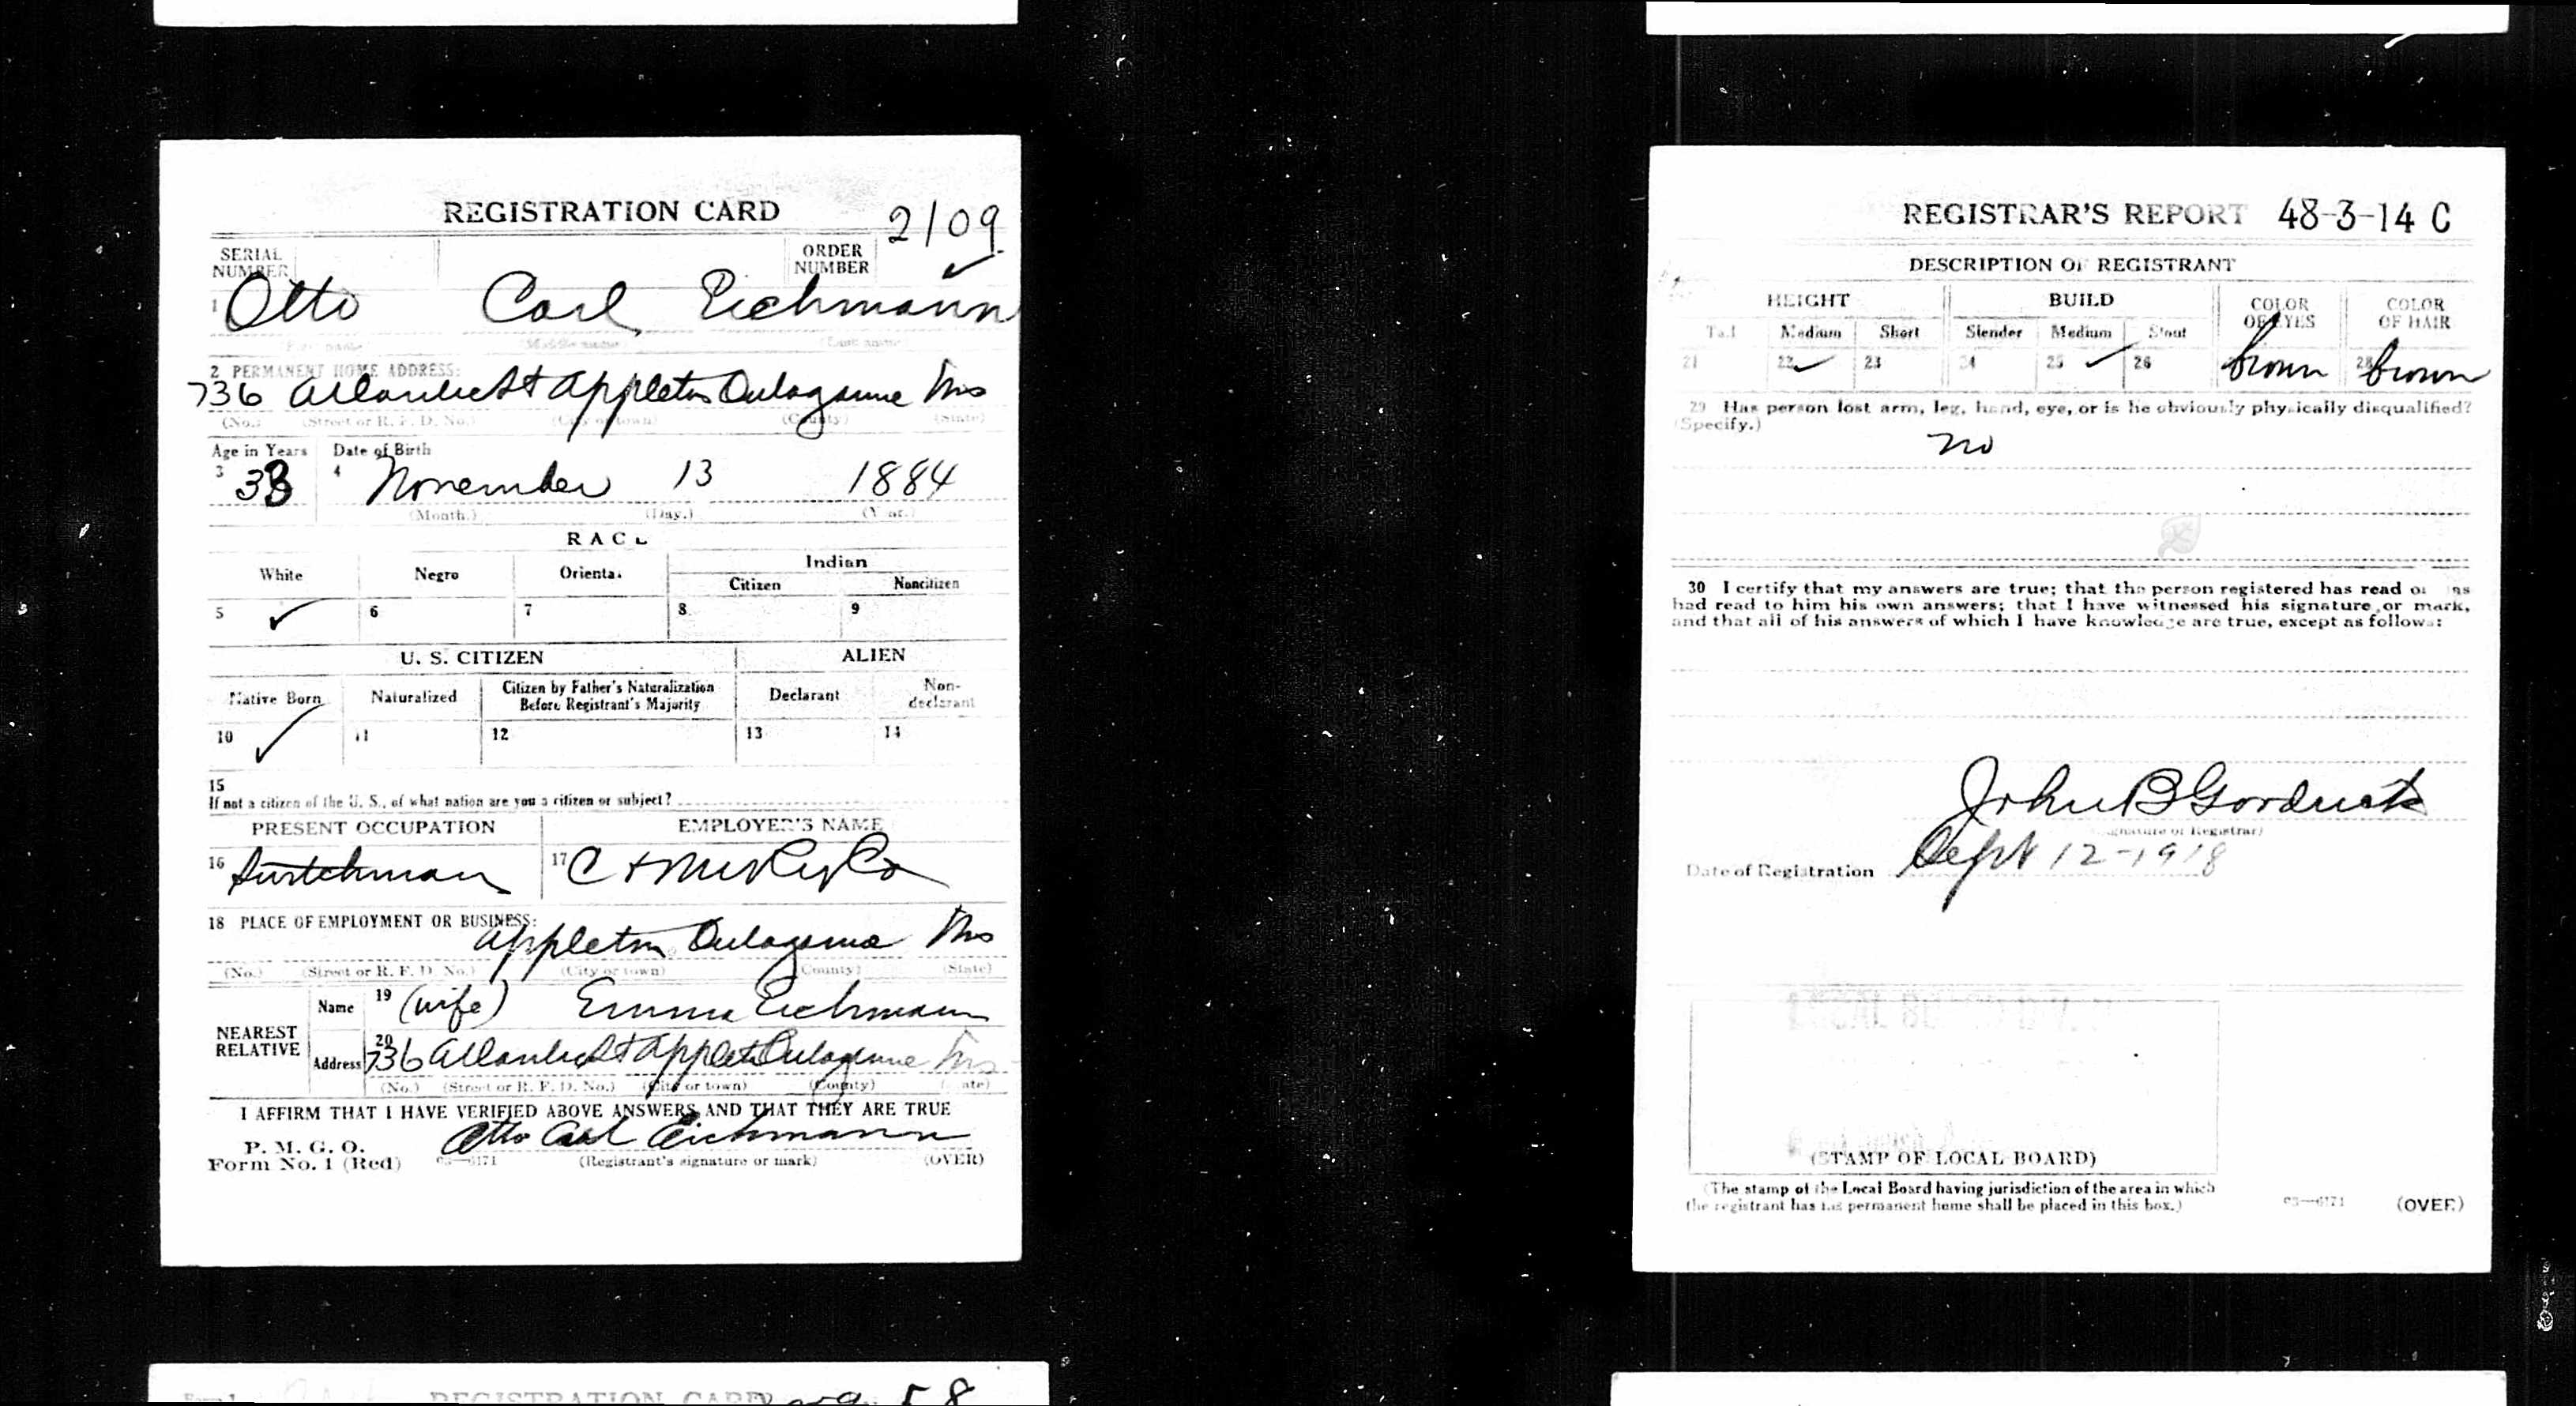 REGISTRATION CARD 2109
SERIAL NUMBER
ORDER NUMBER
1 Otto Carl Eichmann
(Middle name) (Last name)
2 PERMANENT HOME ADDRESS:
736 Atlantic St Appleton Outagamie Wis
(No.) (Street or R. F. D. No.) (City or town) (County) (State)
Age in Years Date of Birth
3 33 4 November 13 1884
(Month.) (Day.) (Year.)
RACE
White Negro Oriental Indian
Citizen Noncitizen
5 ✓ 6 7 8 9
U. S. CITIZEN ALIEN
Native Born Naturalized Citizen by Father's Naturalization Before Registrant's Majority Declarant Non-declarant
10 ✓ 11 12 13 14
15
If not a citizen of the U. S., of what nation are you a citizen or subject?
PRESENT OCCUPATION EMPLOYER'S NAME
16 Switchman 17 C + NW Ry Co
18 PLACE OF EMPLOYMENT OR BUSINESS:
Appleton Outagamie Wis
(No.) (Street or R. F. D. No.) (City or town) (County) (State)
NEAREST RELATIVE
Name 19 (wife) Emma Eichmann
Address 20 736 Atlantic St Appleton Outagamie Wis
(No.) (Street or R. F. D. No.) (City or town) (County) (State)
I AFFIRM THAT I HAVE VERIFIED ABOVE ANSWERS AND THAT THEY ARE TRUE
P. M. G. O.
Form No. 1 (Red)
Otto Carl Eichmann
03—6171 (Registrant's signature or mark) (OVER)
REGISTRATION CARD 58
REGISTRAR'S REPORT 48-3-14 C
DESCRIPTION OF REGISTRANT
HEIGHT BUILD COLOR OF EYES COLOR OF HAIR
Tall Medium Short Slender Medium Stout
21 22 ✓ 23 24 25 ✓ 26 brown 28 brown
29 Has person lost arm, leg, hand, eye, or is he obviously physically disqualified?
(Specify.)
no
30 I certify that my answers are true; that the person registered has read or has
had read to him his own answers; that I have witnessed his signature or mark,
and that all of his answers of which I have knowledge are true, except as follows:
John B Goodrich
(Signature of Registrar)
Date of Registration Sept 12-1918
(STAMP OF LOCAL BOARD)
(The stamp of the Local Board having jurisdiction of the area in which
the registrant has his permanent home shall be placed in this box.)
03—6171 (OVER)